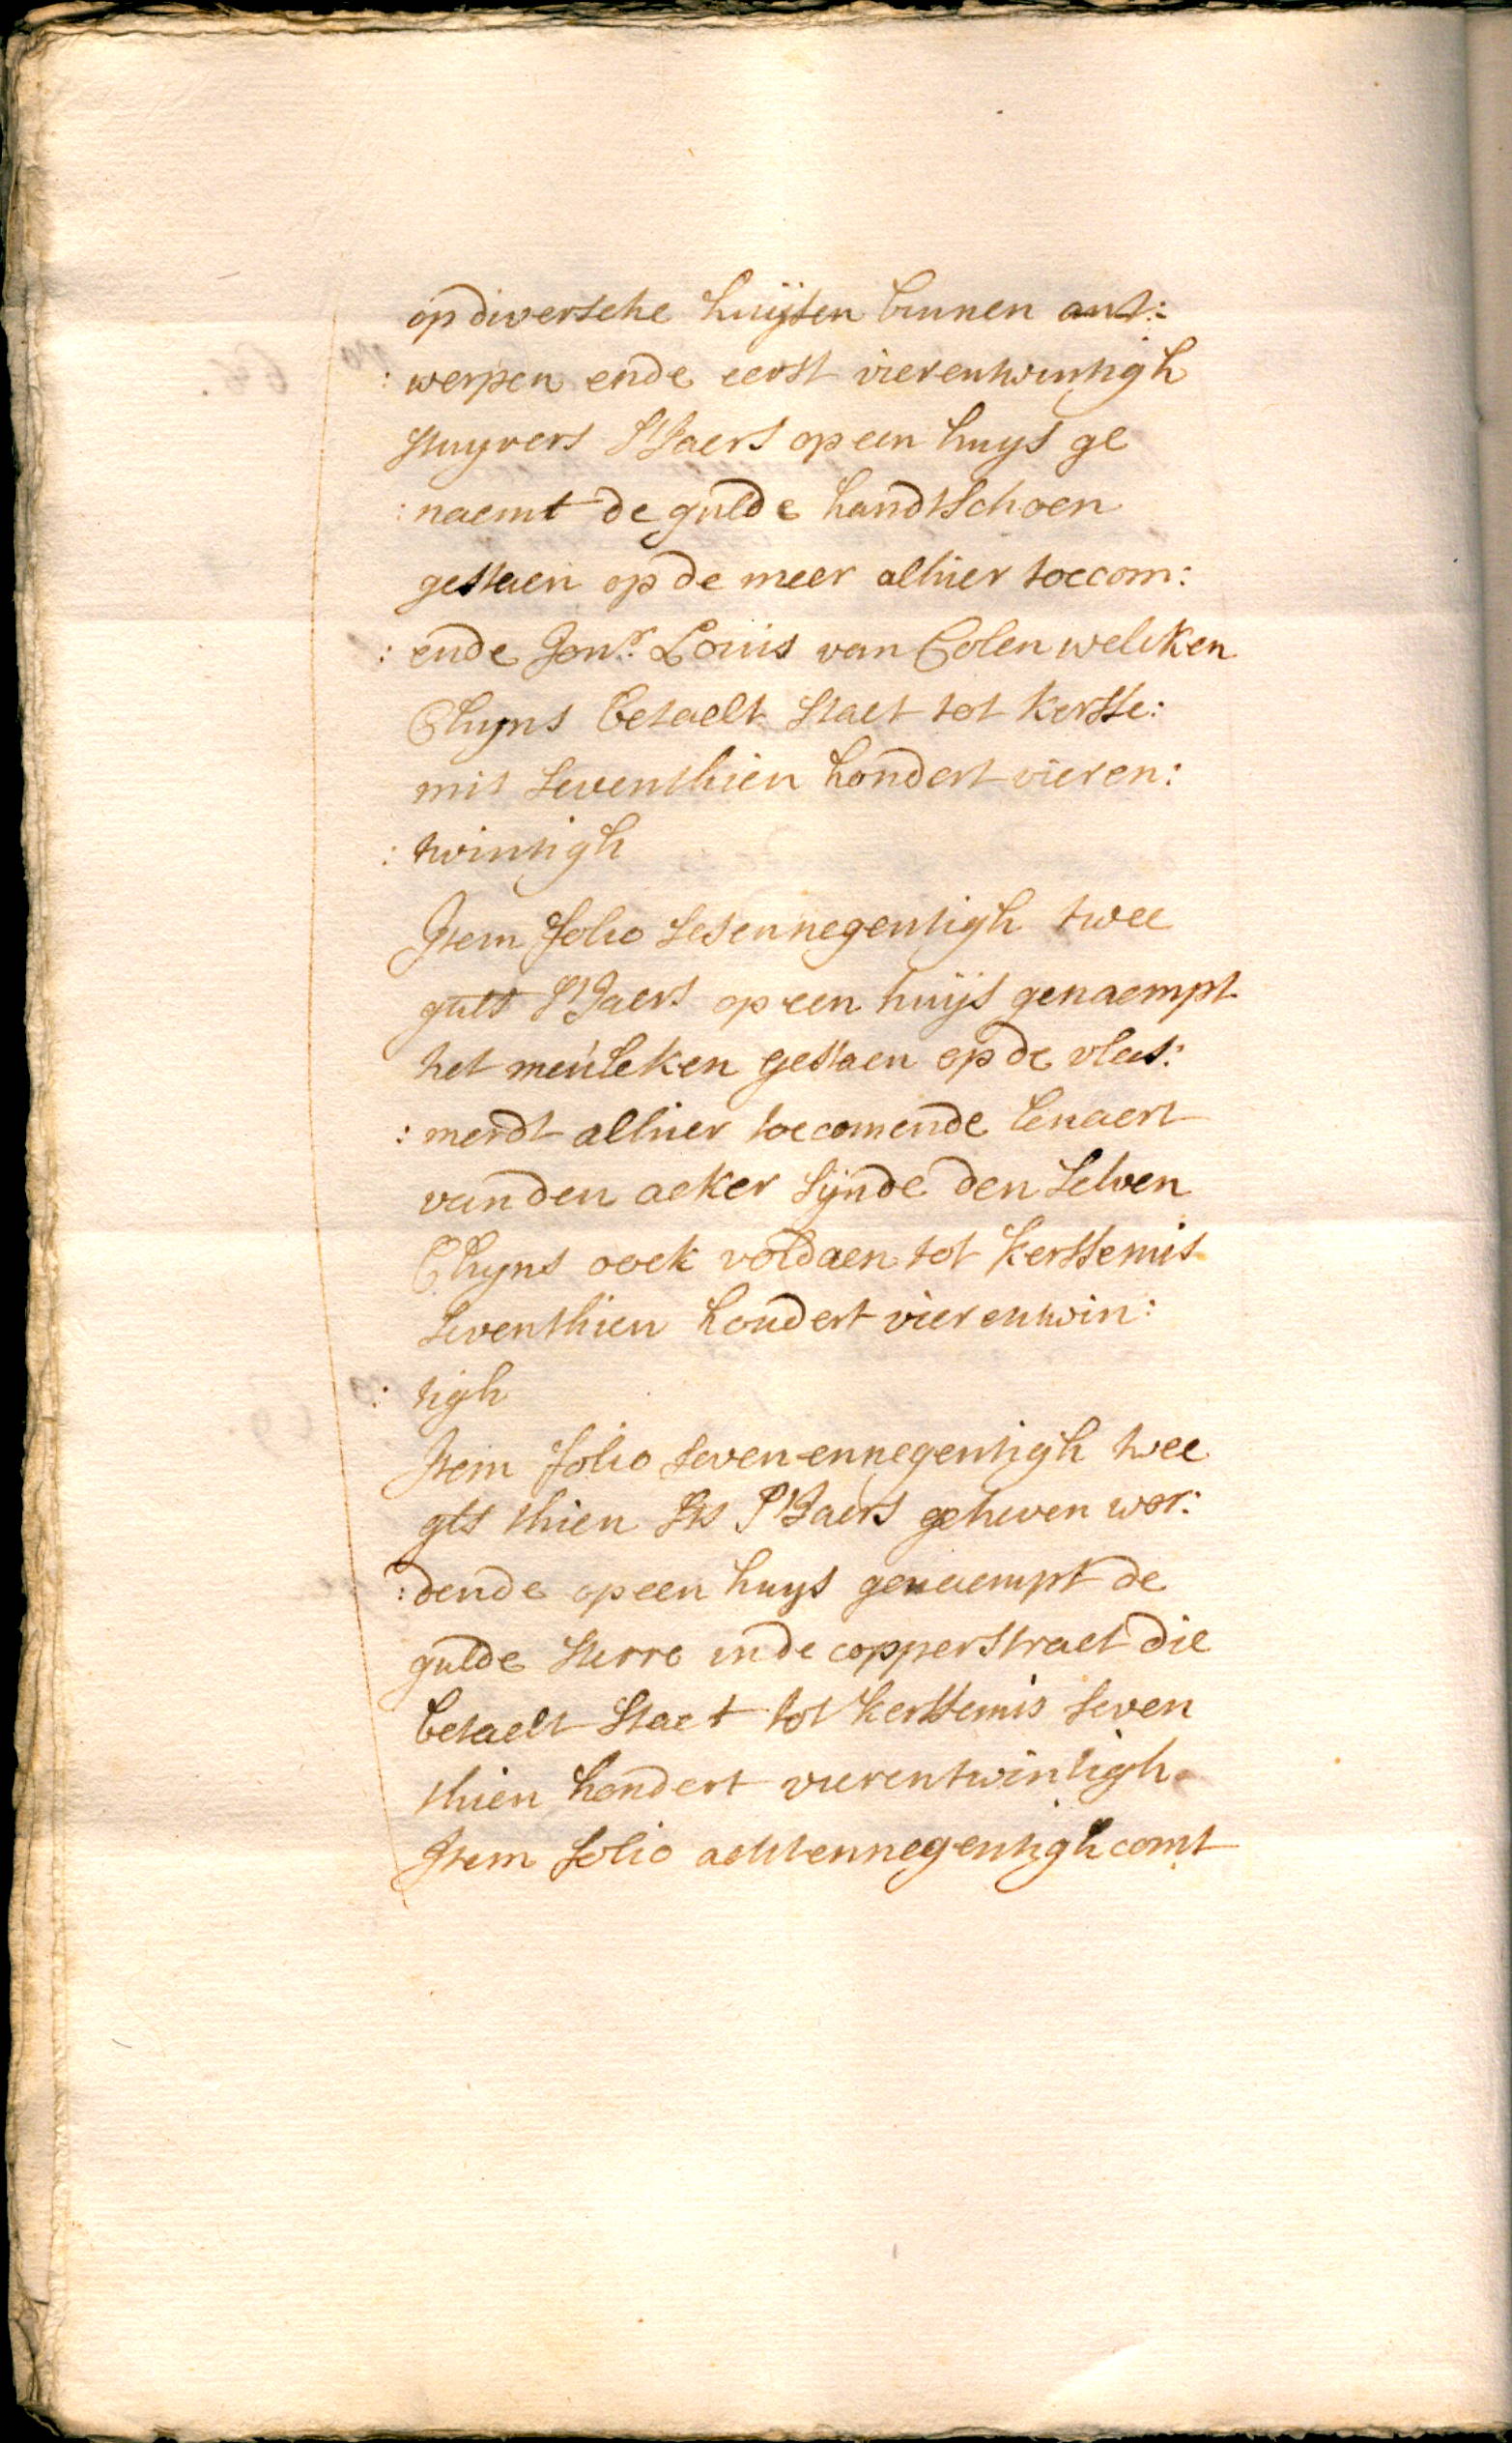 op diversche huijsen binnen ant:
: werpen ende eerst vierentwintigh
stuyvers Sjaers op een huys ge
: naemt de gulde handtschoen
gestaen op de meer alhier toecom:
: ende Jonr. Louis van Colen welcken
Chyns betaelt staet tot kerste:
mis seventhien hondert vieren:
: twintigh
Item folio sesennegentigh twee
guls Sjaers op een huijs genaempt
het meuleken gestaen op de vlas:
: merdt alhier toecomende lenaert
vanden acker sijnde den selven
Chyns oock voldaen tot kerstemis
seventhien hondert vierentwin:
: tigh
Item folio seven-ennegentigh twee
gls thien sts Sjaers geheven wor:
: dende op een huys genaempt de
gulde sterre inde copperstraet die
betaelt staet tot kerstemis seven
thien hondert vierentwintigh
Item folio achtennegentigh comt